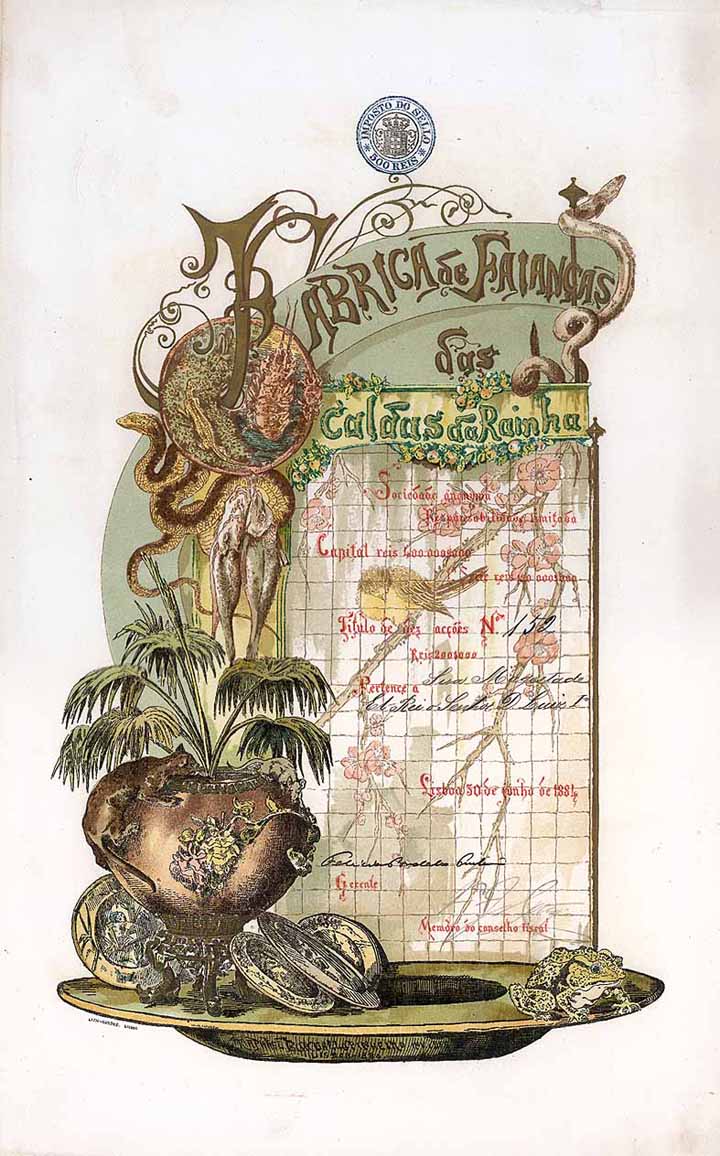 IMPOSTO DO SELLO
500 REIS
FABRICA de FAIANÇAS
das
Caldas da Rainha
Sociedade anonyma
Responsabilidade limitada
Capital reis
Titulo de dez acções Nº 150
Reis 200$000
Pertence a Sua Magestade
El Rei o Senhor D. Luiz 1º
Lisboa 30 de junho de 1884
Gerente
Membro do conselho fiscal